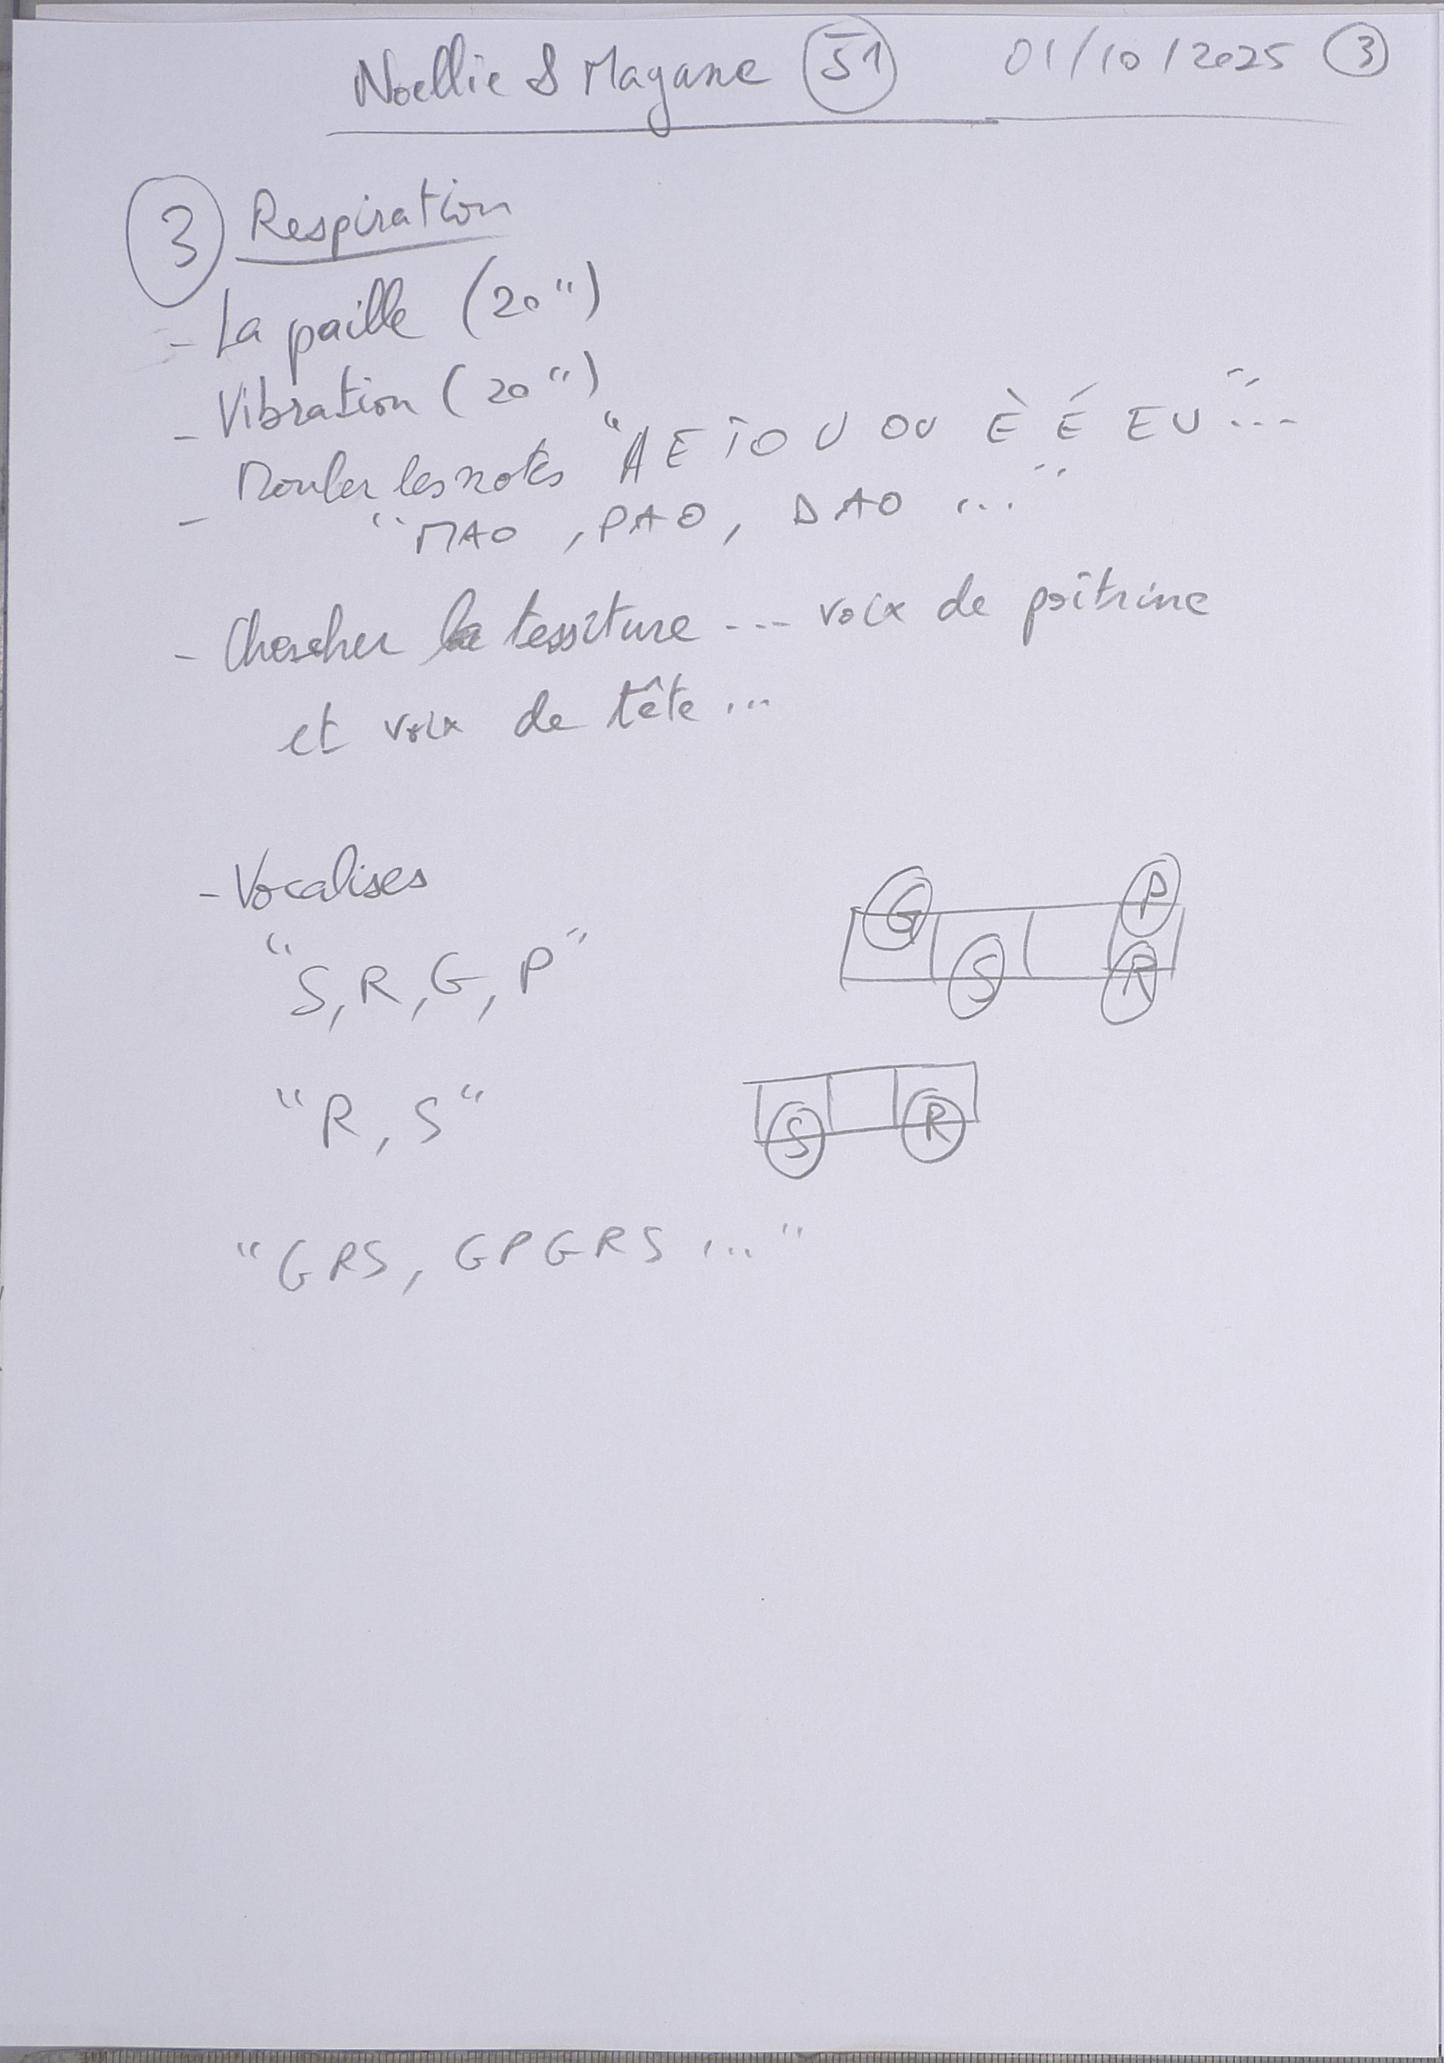 Noellie & Magane 51 01/10/2025 3
3 Respiration
- La paille (20")
- Vibration (20")
- Mouler les notes "A E I O U OU È É EU"...
"MAO, PAO, DAO ..."
- Chercher la tessiture --- voix de poîtrine
et voix de tête ...
- Vocalises
"S, R, G, P"
G P
S R
"R, S"
S R
"GRS, GPGRS ..."